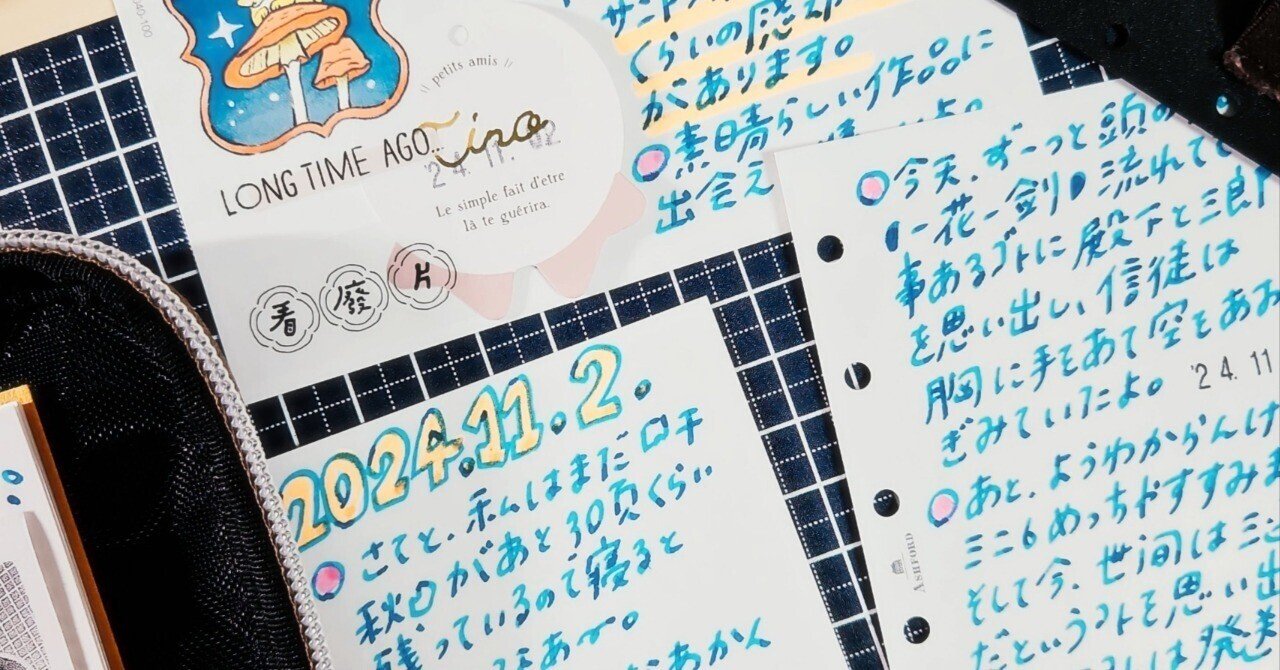 040-100
LONG TIME AGO...
petits amis
Tino
'24.11.02
Le simple fait d'etre
là te guérira.
看發片
くらいの
があります。
素晴らしい作品に
出会え
2024.11.2.
さてと、私はまだロキ
秋口があと30頁くらい
残っているので寝ると
あかん
今天、ずーっと頭の
一花一剣 流れてて
事あるゴトに殿下と三郎
を思い出し、信徒は
胸に手をあて空をあお
ぎみていたよ。
'24.11
あと、ようわからんけ
ミニ6めっちゃすすみま
そして今、世间は三
だというコトを思い出
は発美
ASHFORD